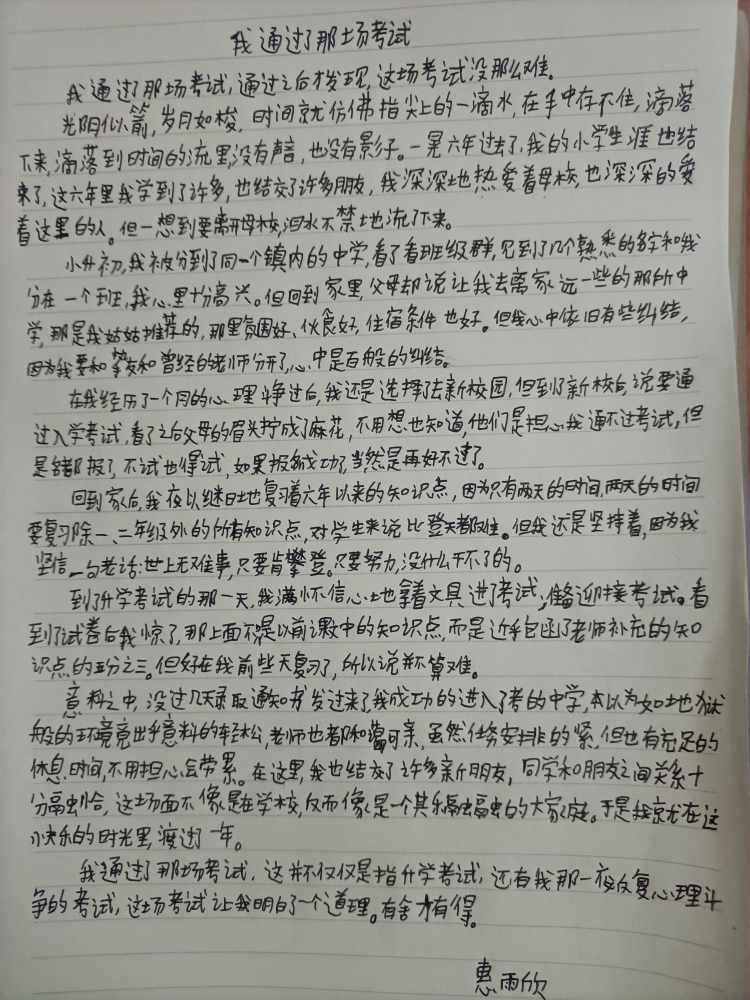 我通过了那场考试
我通过了那场考试，通过之后才发现，这场考试没那么难。
光阴似箭，岁月如梭，时间就仿佛指尖上的一滴水，在手中存不住，滴落
下来，滴落到时间的流里，没有声音，也没有影子。一晃六年过去了，我的小学生涯也结
束了，这六年里我学到了许多，也结交了许多朋友，我深深地热爱着母校，也深深的爱
着这里的人。但一想到要离开母校，泪水不禁地流了下来。
小升初，我被分到了同一个镇内的中学，看了看班级群，见到了几个熟悉的名字和我
分在一个班，我心里十分高兴。但回到家里，父母却说让我去离家远一些的那所中
学，那是我姑姑推荐的，那里氛围好、伙食好，住宿条件也好。但我心中依旧有些纠结，
因为我要和挚友和曾经的老师分开了，心中是百般的纠结。
在我经历了一个月的心理斗争过后，我还是选择了去新校园，但到了新校后，说要通
过入学考试，看了之后父母的眉头拧成了麻花，不用想也知道，他们是担心我通不过考试，但
是名都报了，不试也得试，如果报名成功了，当然是再好不过了。
回到家后，我夜以继日地复习着六年以来的知识点，因为只有两天的时间，两天的时间
要复习除一、二年级外的所有知识点，对学生来说比登天都难。但我还是坚持着，因为我
坚信一句老话：世上无难事，只要肯攀登。只要努力，没什么干不了的。
到了升学考试的那一天，我满怀信心地拿着文具进了考试，准备迎接考试。看
到了试卷后我惊了，那上面不是以前课中的知识点，而是近乎包函了老师补充的知
识点的四分之三。但好在我前些天复习了，所以说并不算难。
意料之中，没过几天录取通知书发过来了，我成功的进入了考的中学，本以为如地狱
般的环境竟出乎意料的轻松，老师也都和蔼可亲，虽然任务安排的紧，但也有充足的
休息时间，不用担心会劳累。在这里，我也结交了许多新朋友，同学和朋友之间关系十
分融恰，这场面不像是在学校，反而像是一个其乐融融的大家庭。于是我就在这
小快乐的时光里，渡过了一年。
我通过了那场考试，这并不仅仅是指升学考试，还有我那一夜反复心理斗
争的考试，这场考试让我明白了一个道理。有舍才有得。
惠雨欣